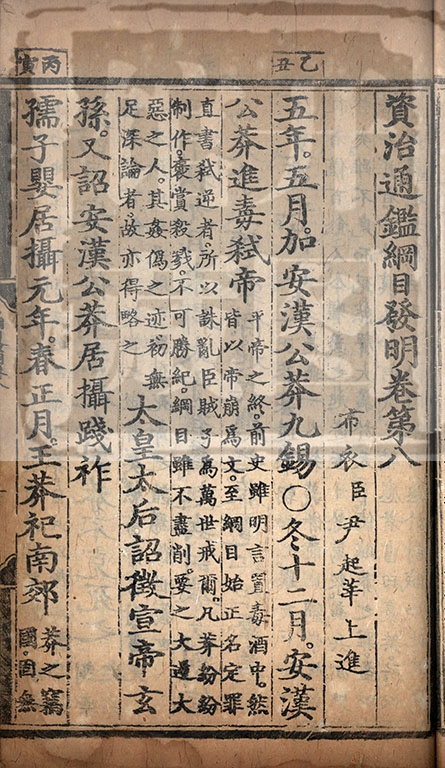 乙丑
資治通鑑綱目發明卷第八
布衣臣尹起莘上進
五年。五月。加安漢公莽九錫〇冬十二月。安漢
公莽進毒弑帝
平帝之終。前史雖明言置毒酒中。然
皆以帝崩爲文。至綱目始正名定罪
直書弑逆者。所以誅亂臣賊子爲萬世戒爾。凡莽紛紛
制作。褒賞殺戮。不可勝紀。綱目雖不盡削。要之大逆大
惡之人。其姦僞之迹。初無
足深論者。故亦得略之
太皇太后詔徵宣帝玄
孫。又詔安漢公莽居攝踐祚
丙寅
孺子嬰居攝元年。春正月。王莽祀南郊
莽之竊
國。固無